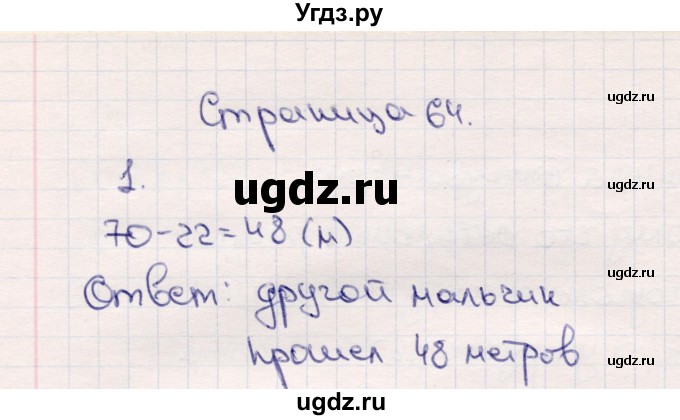 Угдз.ру
ugdz.ru
Страница 64.
ugdz.ru
1.
ugdz.ru
70-22=48 (м)
ugdz.ru
Ответ: другой мальчик
прошел 48 метров
ugdz.ru
ugdz.ru